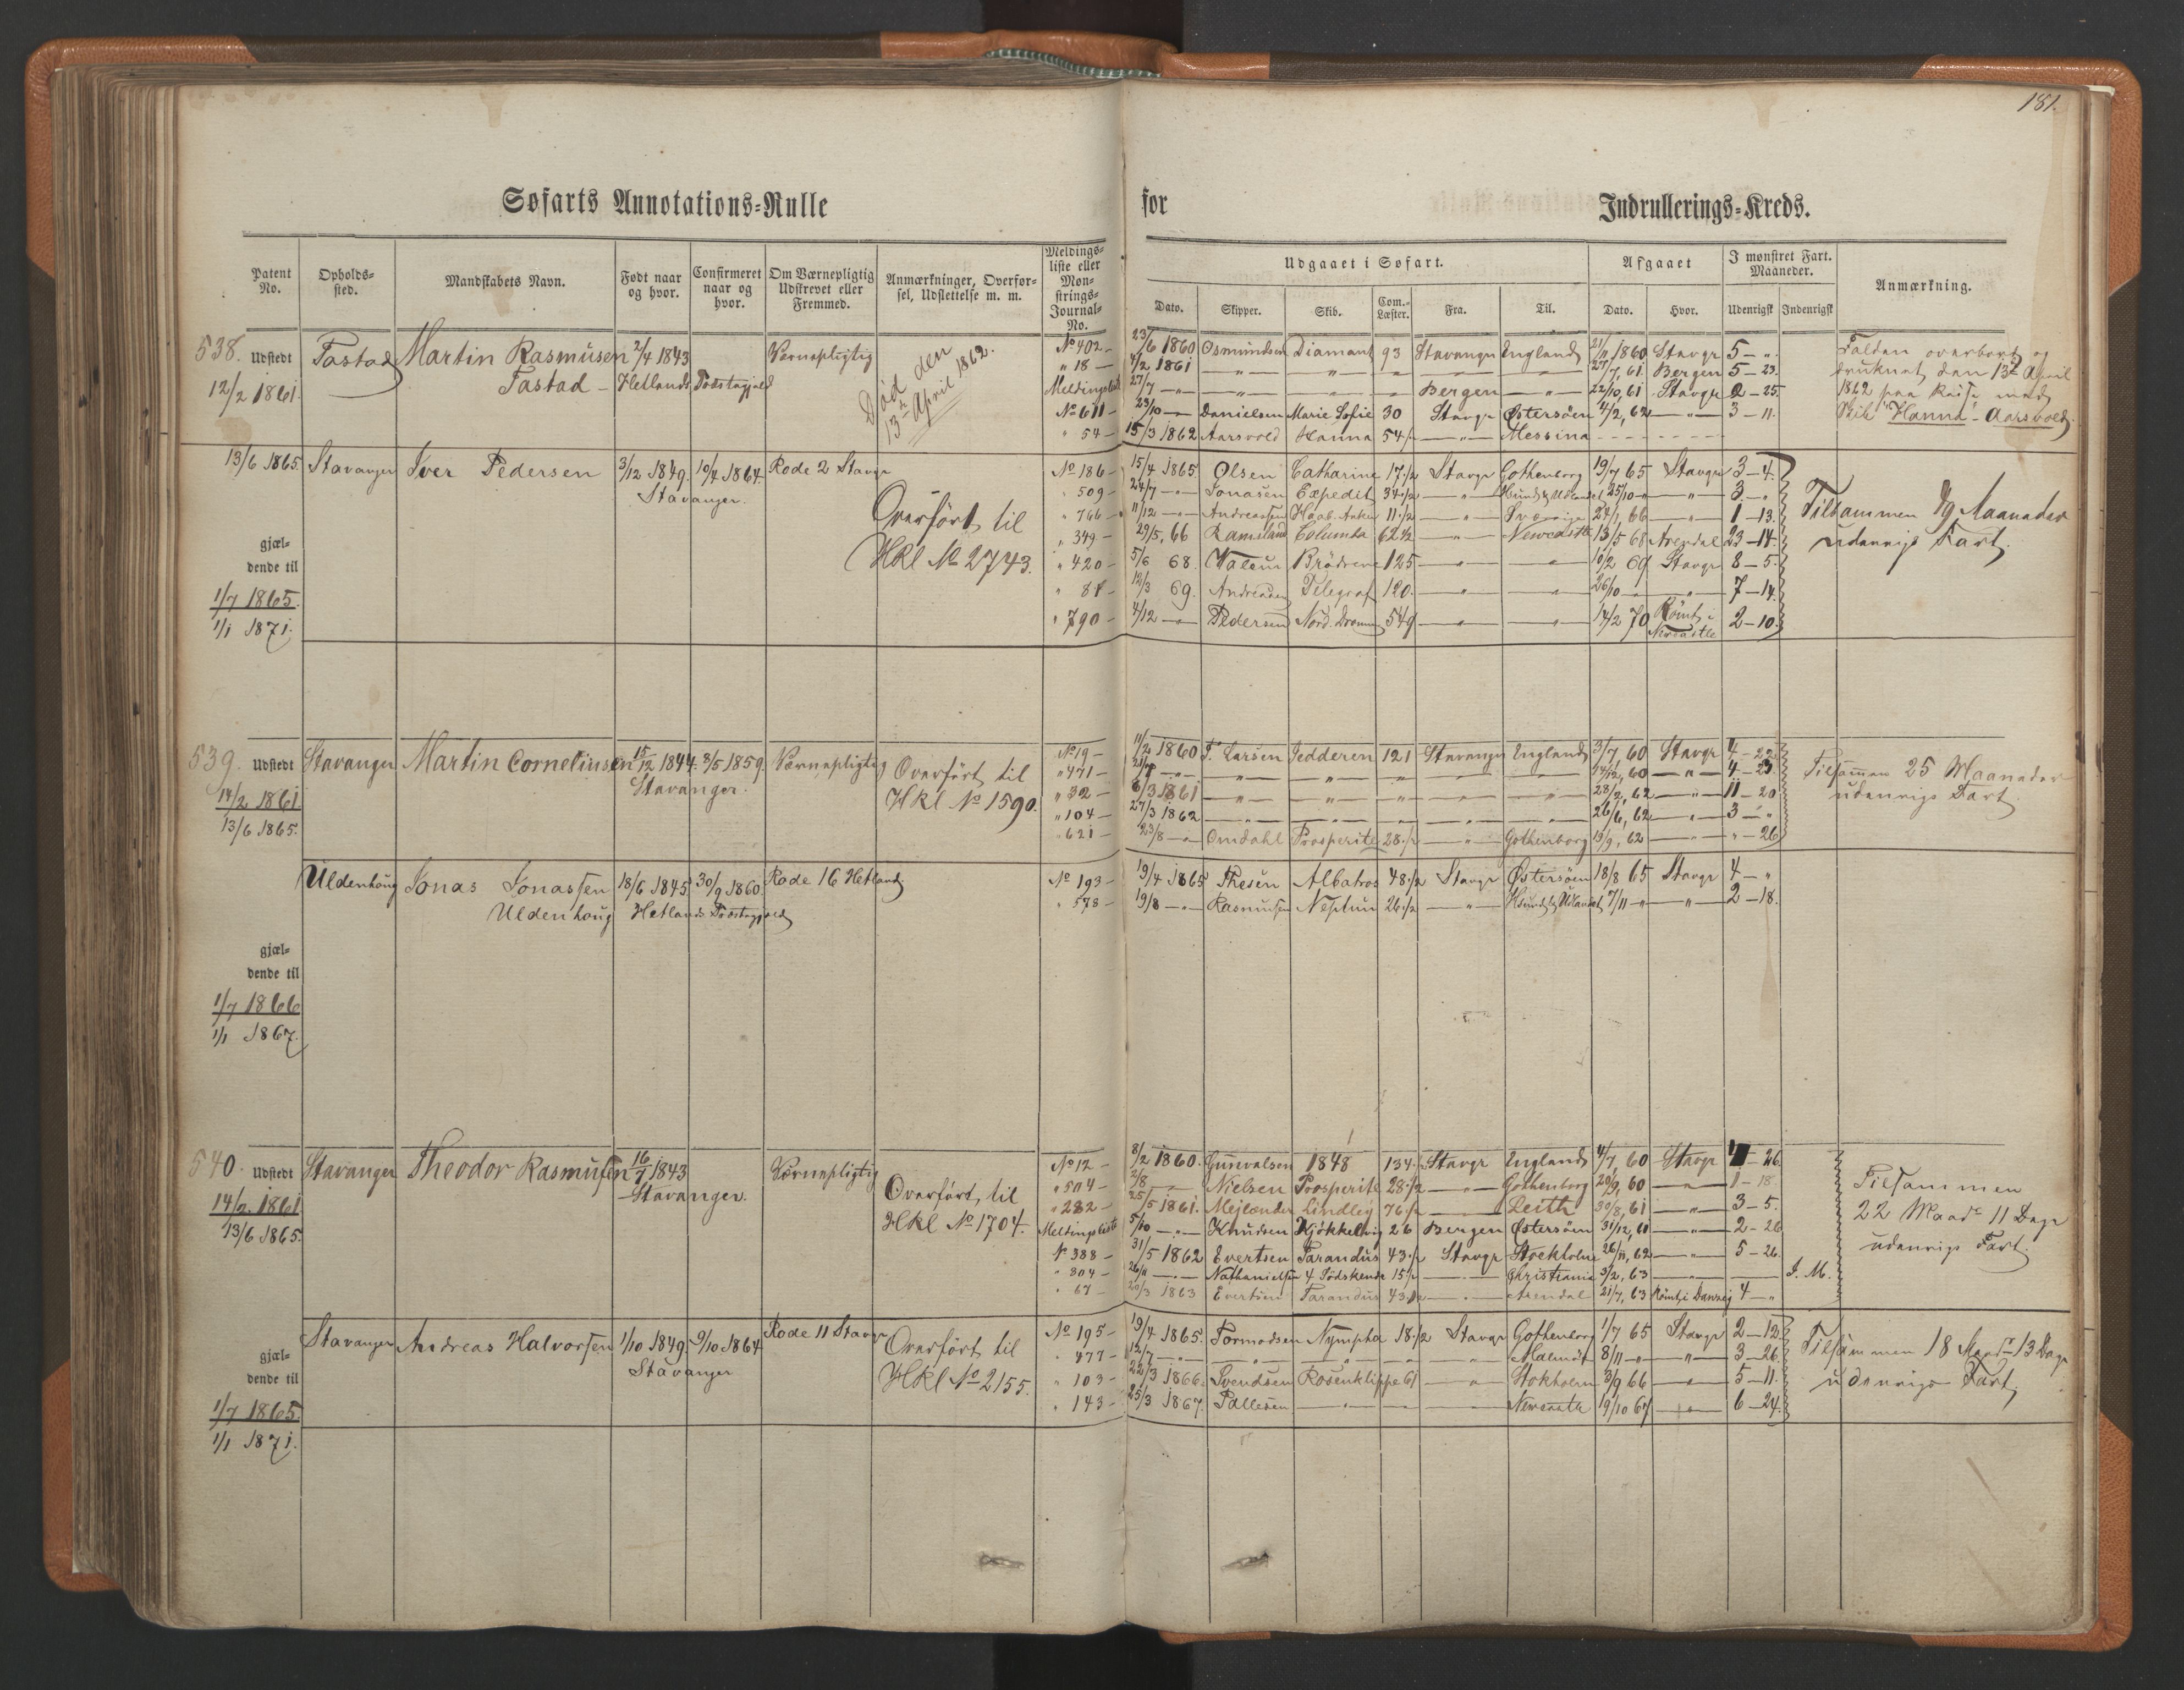 181.
Søfarts Annotations-Rulle for Indrullerings-Kreds.
Patent No.
Opholds-sted.
Mandskabets Navn.
Født naar og hvor.
Confirmeret naar og hvor.
Om Værnepligtig Udskrevet eller Fremmed.
Anmærkninger, Overfør-sel, Udslettelse m. m.
Meldings-liste eller Møn-strings-Journal-No.
Udgaaet i Søfart.
Dato. Skipper. Skib. Com.-Læster. Fra. Til.
Afgaaet
Dato. Hvor.
I mønstret Fart. Maaneder.
Udenrigsk Indenrigsk
Anmærkning.
538. Udstedt 12/2 1861.
Tastad Martin Rasmusen 2/4 1843 Værnepligtig
Tastad - Hetlands Præstegjeld
Død den 13de April 1862.
No 402 - 23/6 1860 Osmundsen Diamant 93 Stavanger England 21/11 1860 Stavgr 5 - „
„ 18 - 4/2 1861 — „ — „ — „ — „ — „ 27/7, 61. Bergen 5 - 23.
Meldingsliste 27/7 — „ — „ — „ — „ Bergen — „ — 22/10, 61 Stavgr 2 - 25.
No 611 - 23/10 — Danielsen Marie Sofie 30 Stavgr Østersøen 4/2, 62 — „ — 3 - 11.
„ 54 - 15/3 1862 Aarsvold Hanna 54 — „ — Messina
Falden overbord og
druknet den 13de April
1862 paa Reise med
Skib "Hanna" - Aarsvold.
13/6 1865. Stavanger Iver Pedersen 3/12 1849. 10/4 1864. Rode 2 Stavgr
Stavanger.
Overført til
Hkl No 2743.
gjæl-
dende til
1/7 1865.
1/1 1871.
No 186 - 15/4 1865. Olsen Catharine 17 1/2 Stavgr Gothenborg 19/7 65 Stavgr 3 - 4.
„ 509 - 24/7 — „ — Jonasen Expedit 34 1/2 — „ — 25/10 — „ — „ — 3 - „
„ 766 - 11/12 — „ — Andreassen Haab. Anker 11 1/2 — „ — 24/1, 66 — „ — 1 - 13.
„ 349 - 29/5, 66 Ramsland Columba 62 1/2 — „ — Newcastle 13/5 68 Arendal 23 - 14.
„ 420 - 5/6 68. Brødrene 125 — „ — „ — 10/2 69 Stavgr 8 - 5.
„ 81 - 12/3 69. Andreasen Telegraf 120. — „ — „ — 26/10 — „ — 7 - 14.
„ 790 - 4/12 — „ — Pedersen 549 — „ — „ — 14/2 70 Rømt i Newcastle 2 - 10.
Tilsammen 49 Maaneder
udenrigs Fart.
539. Udstedt 14/2 1861
13/6 1865.
Stavanger Martin Corneliussen 15/12 1844. 8/5 1859. Værnepligtig
Stavanger.
Overført til
Hkl No 1590.
No 19 - 11/2 1860 T. Larsen Jedderen 121 Stavanger England 3/7, 60 Stavgr 4 - 22.
„ 471 - — „ — „ — „ — „ — „ — 14/12, 60 — „ — 4 - 23.
„ 32 - 6/3 1861 — „ — „ — „ — „ — „ — 28/2, 62 — „ — 11 - 20
„ 104 - 27/3 1862 — „ — „ — „ — „ — „ — 26/6, 62 — „ — 3 - „
„ 621 - 23/8 — „ — Omdahl Prosperite 28 1/2 — „ — Gothenborg 19/9, 62 — „ — „ - 26.
Tilsammen 25 Maaneder
udenrigs Fart.
Uldenhaug Jonas Jonassen 18/6 1845 30/9 1860. Rode 16 Hetland
Uldenhaug Hetlands Præstegjeld
gjæl-
dende til
1/7 1866
1/1 1867.
No 193 - 19/4 1865 Thesen Albatros 48 1/2 Stavgr Østersøen 18/8 65 Stavgr 4 - „
„ 578 - 19/8 — „ — Rasmussen Neptun 26 1/2 — „ — 7/11 — „ — „ — 2 - 18.
540. Udstedt 14/2 1861
13/6 1865.
Stavanger Theodor Rasmusen 16/7 1843 Værnepligtig
Stavanger.
Overført til
Hkl No 1704.
No 12 - 8/2 1860. Gunvalsen 1848 134 Stavgr England 4/7, 60 Stavgr 4 - 26.
„ 504 - 2/8 — „ — Nielsen Prosperite 28 1/2 — „ — Gothenborg 20/9, 60 — „ — 1 - 18
„ 282 - 25/5 1861. Mejlænder Lindley 76 1/2 — „ — Leith 30/8, 61 — „ — 3 - 5.
Meldingsliste 5/10 — „ — Knudsen Kjøkkelvig 26 Bergen Østersøen 31/12, 61 — „ — 2 - 26
No 388 - 31/5 1862 Evertsen Tarandus 43 1/2 Stavgr Stockholm 26/11, 62 — „ — 5 - 26.
„ 804 - 26/11 — „ — Nathanielsen 4 Sødskende 15 1/2 — „ — Christiania 3/2, 63 — „ — J. M.
„ 67 - 20/3 1863 Evertsen Tarandus 43 1/2 — „ — Arendal 21/7, 63 Rømt i Danzig 4 - „
Tilsammen
22 Maadr 11 Dage
udenrigs Fart.
Stavanger Andreas Halvorsen 1/10 1849. 9/10 1864 Rode 11 Stavgr
Stavanger
Overført til
Hkl No 2155.
gjæl-
dende til
1/7 1865.
1/1 1871.
No 195 - 19/4 1865. Tormodsen Nympha 18 1/2 Stavgr Gothenborg 1/7 65 Stavgr 2 - 12.
„ 477 - 12/7 — „ — „ — „ — „ — „ — Malmø 8/11 — „ — „ — 3 - 26.
„ 103 - 22/3 1866. Svendsen Rosenklippe 61 — „ — Stokholm 3/9 66 — „ — 5 - 11.
„ 143 - 25/3 1867. Pallesen — „ — — — Newcastle 19/10 67 — „ — 6 - 24.
Tilsammen 18 Maadr 13 Dage
udenrigs Fart.